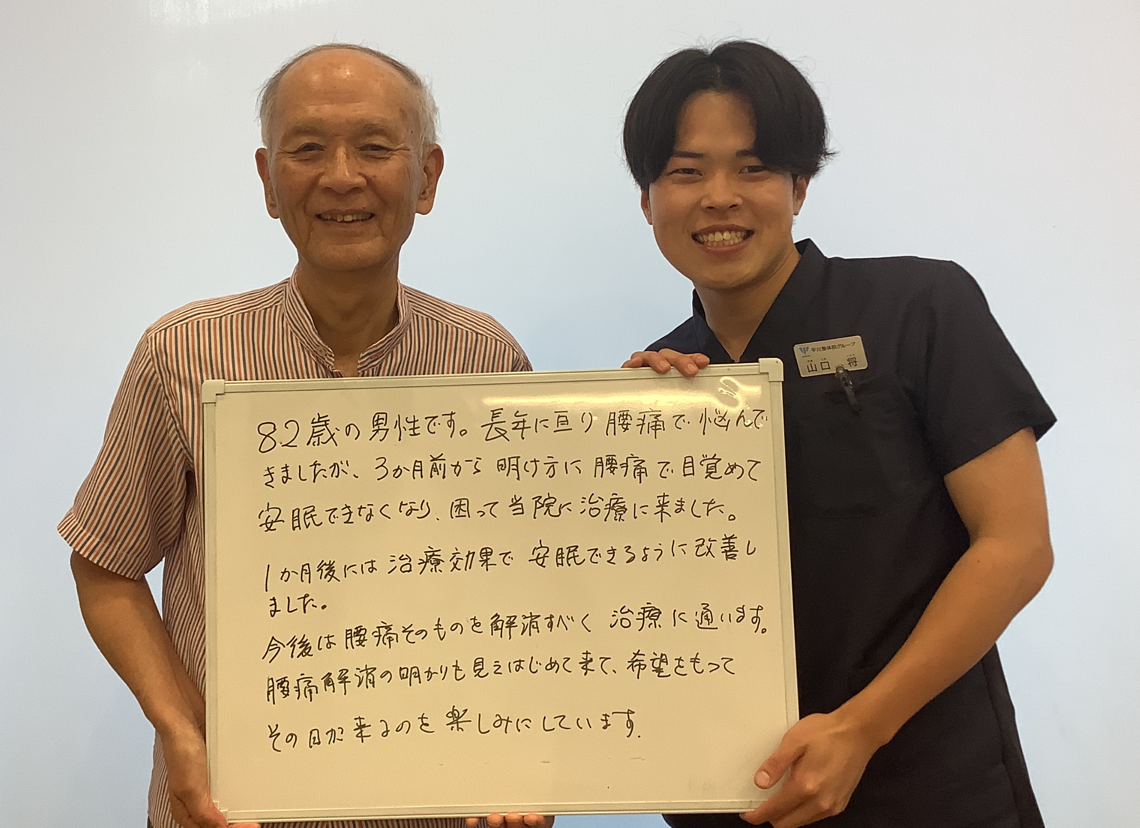 宇川整体院グループ
山口 将
82歳の男性です。長年に亘り腰痛で悩んで
きましたが、3か月前から明け方に腰痛で目覚めて
安眠できなくなり、困って当院に治療に来ました。
1か月後には治療効果で安眠できるように改善し
ました。
今後は腰痛そのものを解消すべく治療に通います。
腰痛解消の明かりも見えはじめて来て、希望をもって
その日が来るのを楽しみにしています.